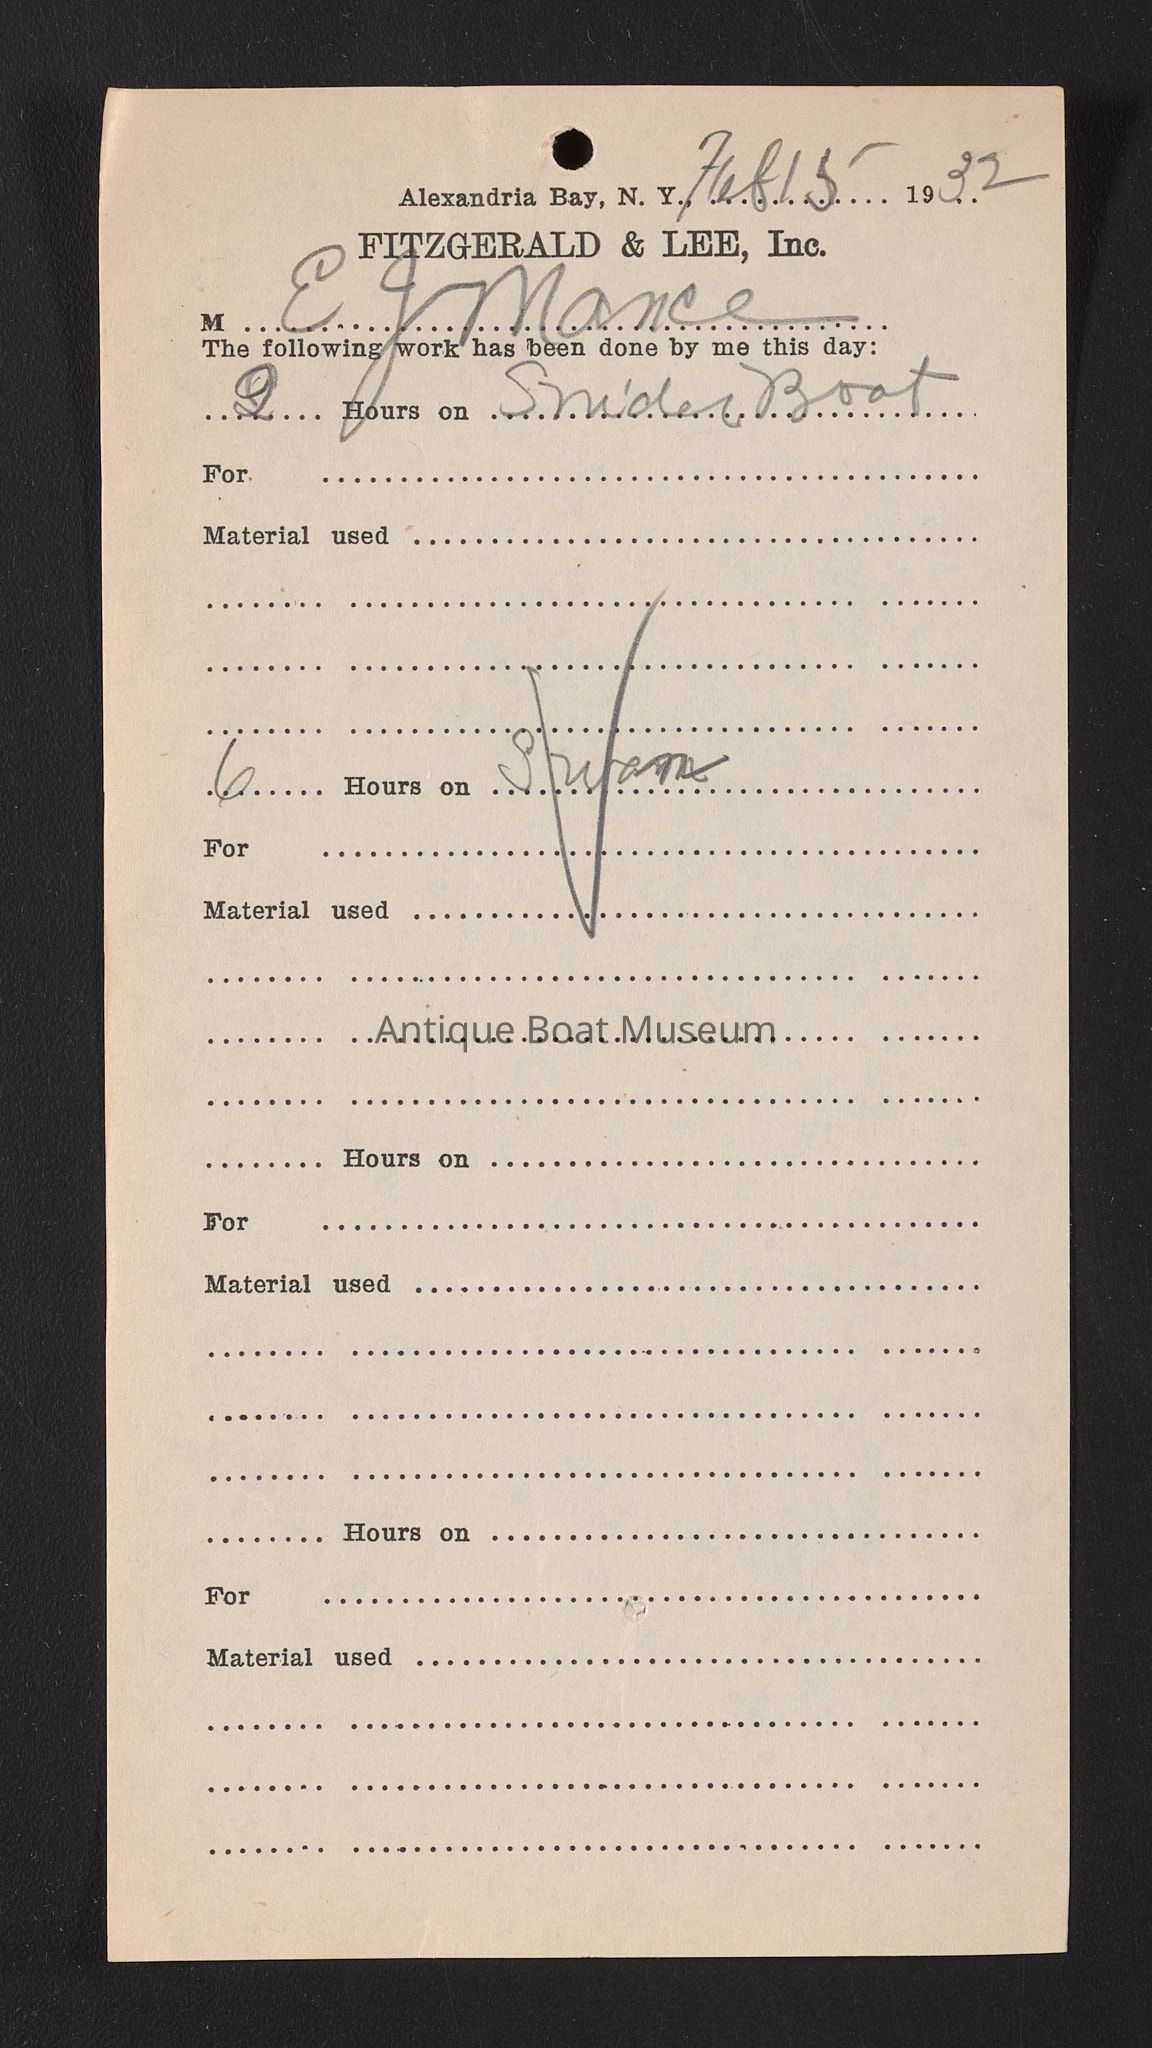 Alexandria Bay, N. Y., Feb 15 1932
FITZGERALD & LEE, Inc.
M E J Mance
The following work has been done by me this day:
2 Hours on Snider Boat
For
Material used
6 Hours on Swan
For
Material used
Antique Boat Museum
Hours on
For
Material used
Hours on
For
Material used